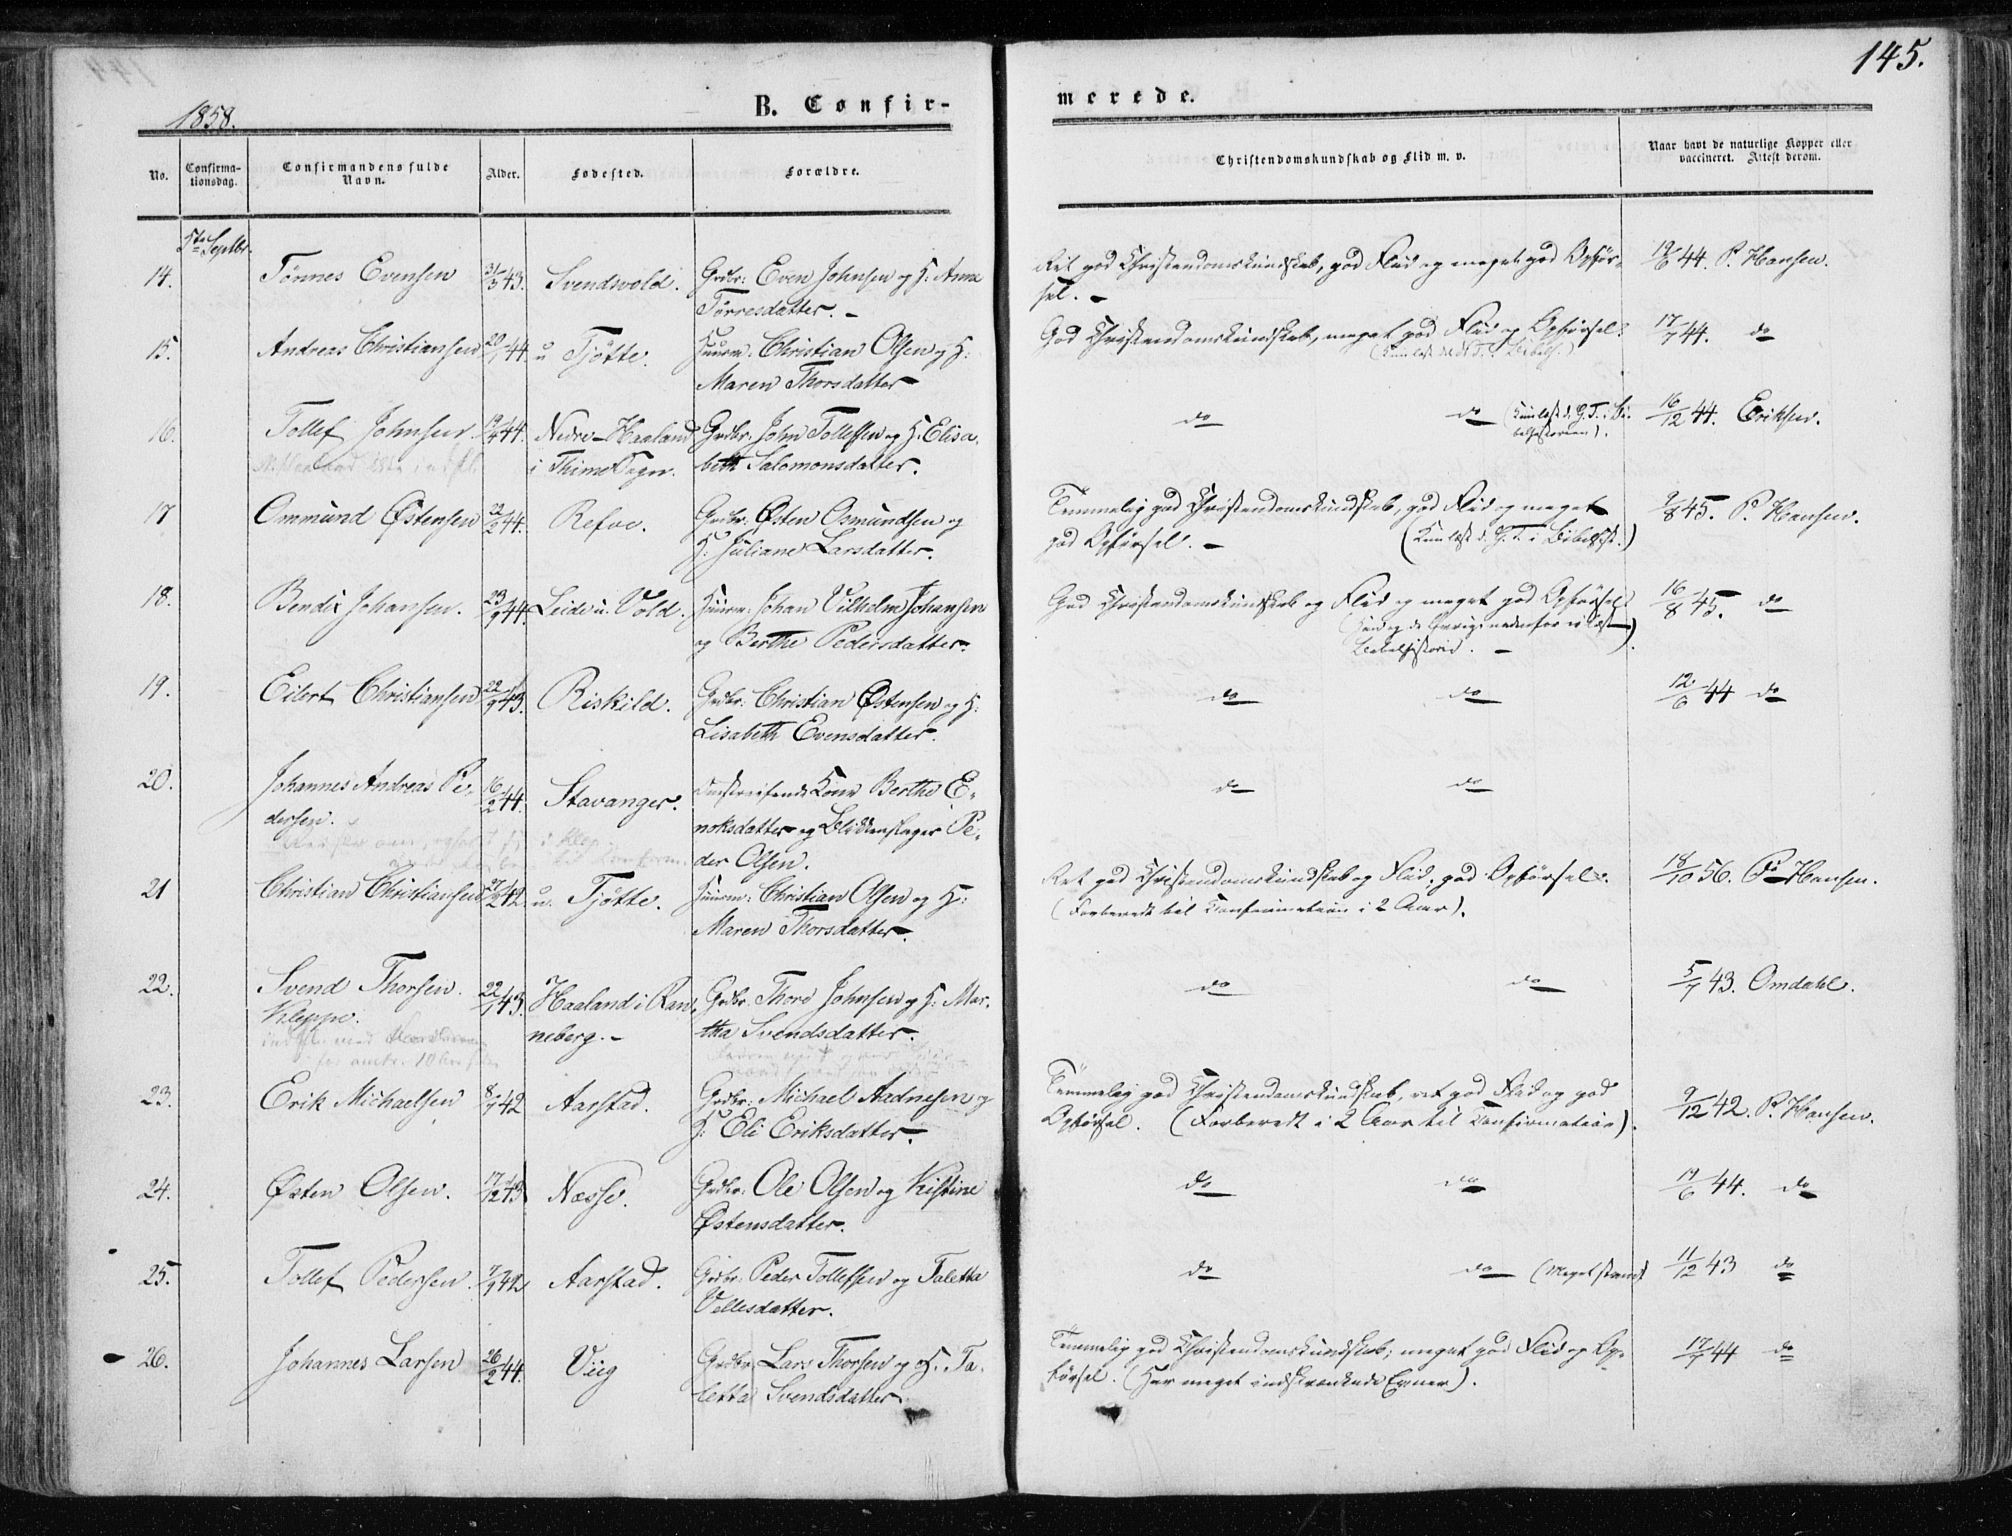 145.
1858.
B. Confir-
merede.
No.
Confirma-
tionsdag.
Confirmandens fulde
Navn.
Alder.
Fødested.
Forældre.
Christendomskundskab og Flid m. v.
Naar havt de naturlige Kopper eller
vaccineret. Attest derom.
5te Septbr.
14. Tønnes Evensen 31/3 43. Svendsvold. Grdbr: Even Johnsen og H: Anna
Tørresdatter. -
Ret god Christendomskundskab, god Flid og meget god Opfør-
sel. -
19/6 44. P. Hansen.
15. Andreas Christiansen 20/1 44. u Tjøtte. Huusm. Christian Olsen og H:
Maren Thorsdatter
God Christendomskundskab, meget god Flid og Opførsel.
17/7 44. do
16. Tollef Johnsen 19/4 44. Nedre-Haaland Grdbr: John Tollefsen og H: Elisa-
i Thime Sogn. beth Salomonsdatter.
do do (Kun læst d. G. T. i Bi-
belhistorien).
16/12 44. Eriksen.
17 Ommund Østensen 22/2 44. Refve. Grdbr: Østen Osmundsen og
H: Juliane Larsdatter.
Temmelig god Christendomskundskab, god Flid og meget
god Opførsel. - (Kun læst d. G. T. i Bibelhist.)
9/8 45. P. Hansen.
18. Bendix Johansen. 23/9 44. Leide u. Vold. Huusm: Johan Vilhelm Johansen
og Berthe Pedersdatter.
God Christendomskundskab og Flid og meget god Opførsel
Bibelhistorie. -
16/8 45. do
19. Eilert Christiansen 22/9 43. Riskild. Grdbr: Christian Østensen og H:
Lisabeth Evensdatter.
do do
12/6 44 do
20. Johannes Andreas Pe- 16/2 44. Stavanger. Kone Berthe E-
dersen. noksdatter og Blikkenslager Pe-
der Olsen.
do do
21 Christian Christiansen 27/2 42. u. Tjøtte. Huusm: Christian Olsen og H:
Maren Thorsdatter.
Ret god Christendomskundskab og Flid, god Opførsel.
(Forberedt til Confirmation i 2 Aar).
18/10 56. P. Hansen.
22. Svend Thorsen. 22/1 43. Haaland i Ran- Grdbr. Thore Johnsen og H: Mar-
Kleppe. neberg. - tha Svendsdatter.
do do
5/7 43. Omdahl.
23. Erik Michaelsen 8/7 42 Aarstad. Grdbr: Michael Aadnesen og
H: Eli Eriksdatter.
Temmelig god Christendomskundskab, ret god Flid og god
Opførsel. (Forberedt i 2 Aar til Confirmation).
9/12 42. P. Hansen.
24. Østen Olsen. 17/12 43 Næsse. Grdbr: Ole Olsen og Kistine
Østensdatter.
do do
19/6 44. do
25. Tollef Pedersen. 7/9 42 Aarstad. Grdbr: Peder Tollefsen og Taletta
Vellesdatter.
do do (Meget
11/12 43 do
26. Johannes Larsen 26/2 44. Viig Grdbr: Lars Thorsen og H. Ta-
letta Svendsdatter.
Temmelig god Christendomskundskab; meget god Flid og Op-
førsel. (Har meget indskrænkede Evner).
17/7 44 do